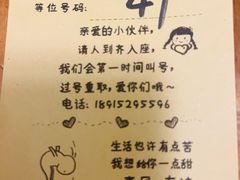 等位号码: 41
亲爱的小伙伴,
请人到齐入座,
我们会第一时间叫号,
过号重取,爱你们哦~
电话: 18915295596
生活也许有点苦
我想给你一点甜